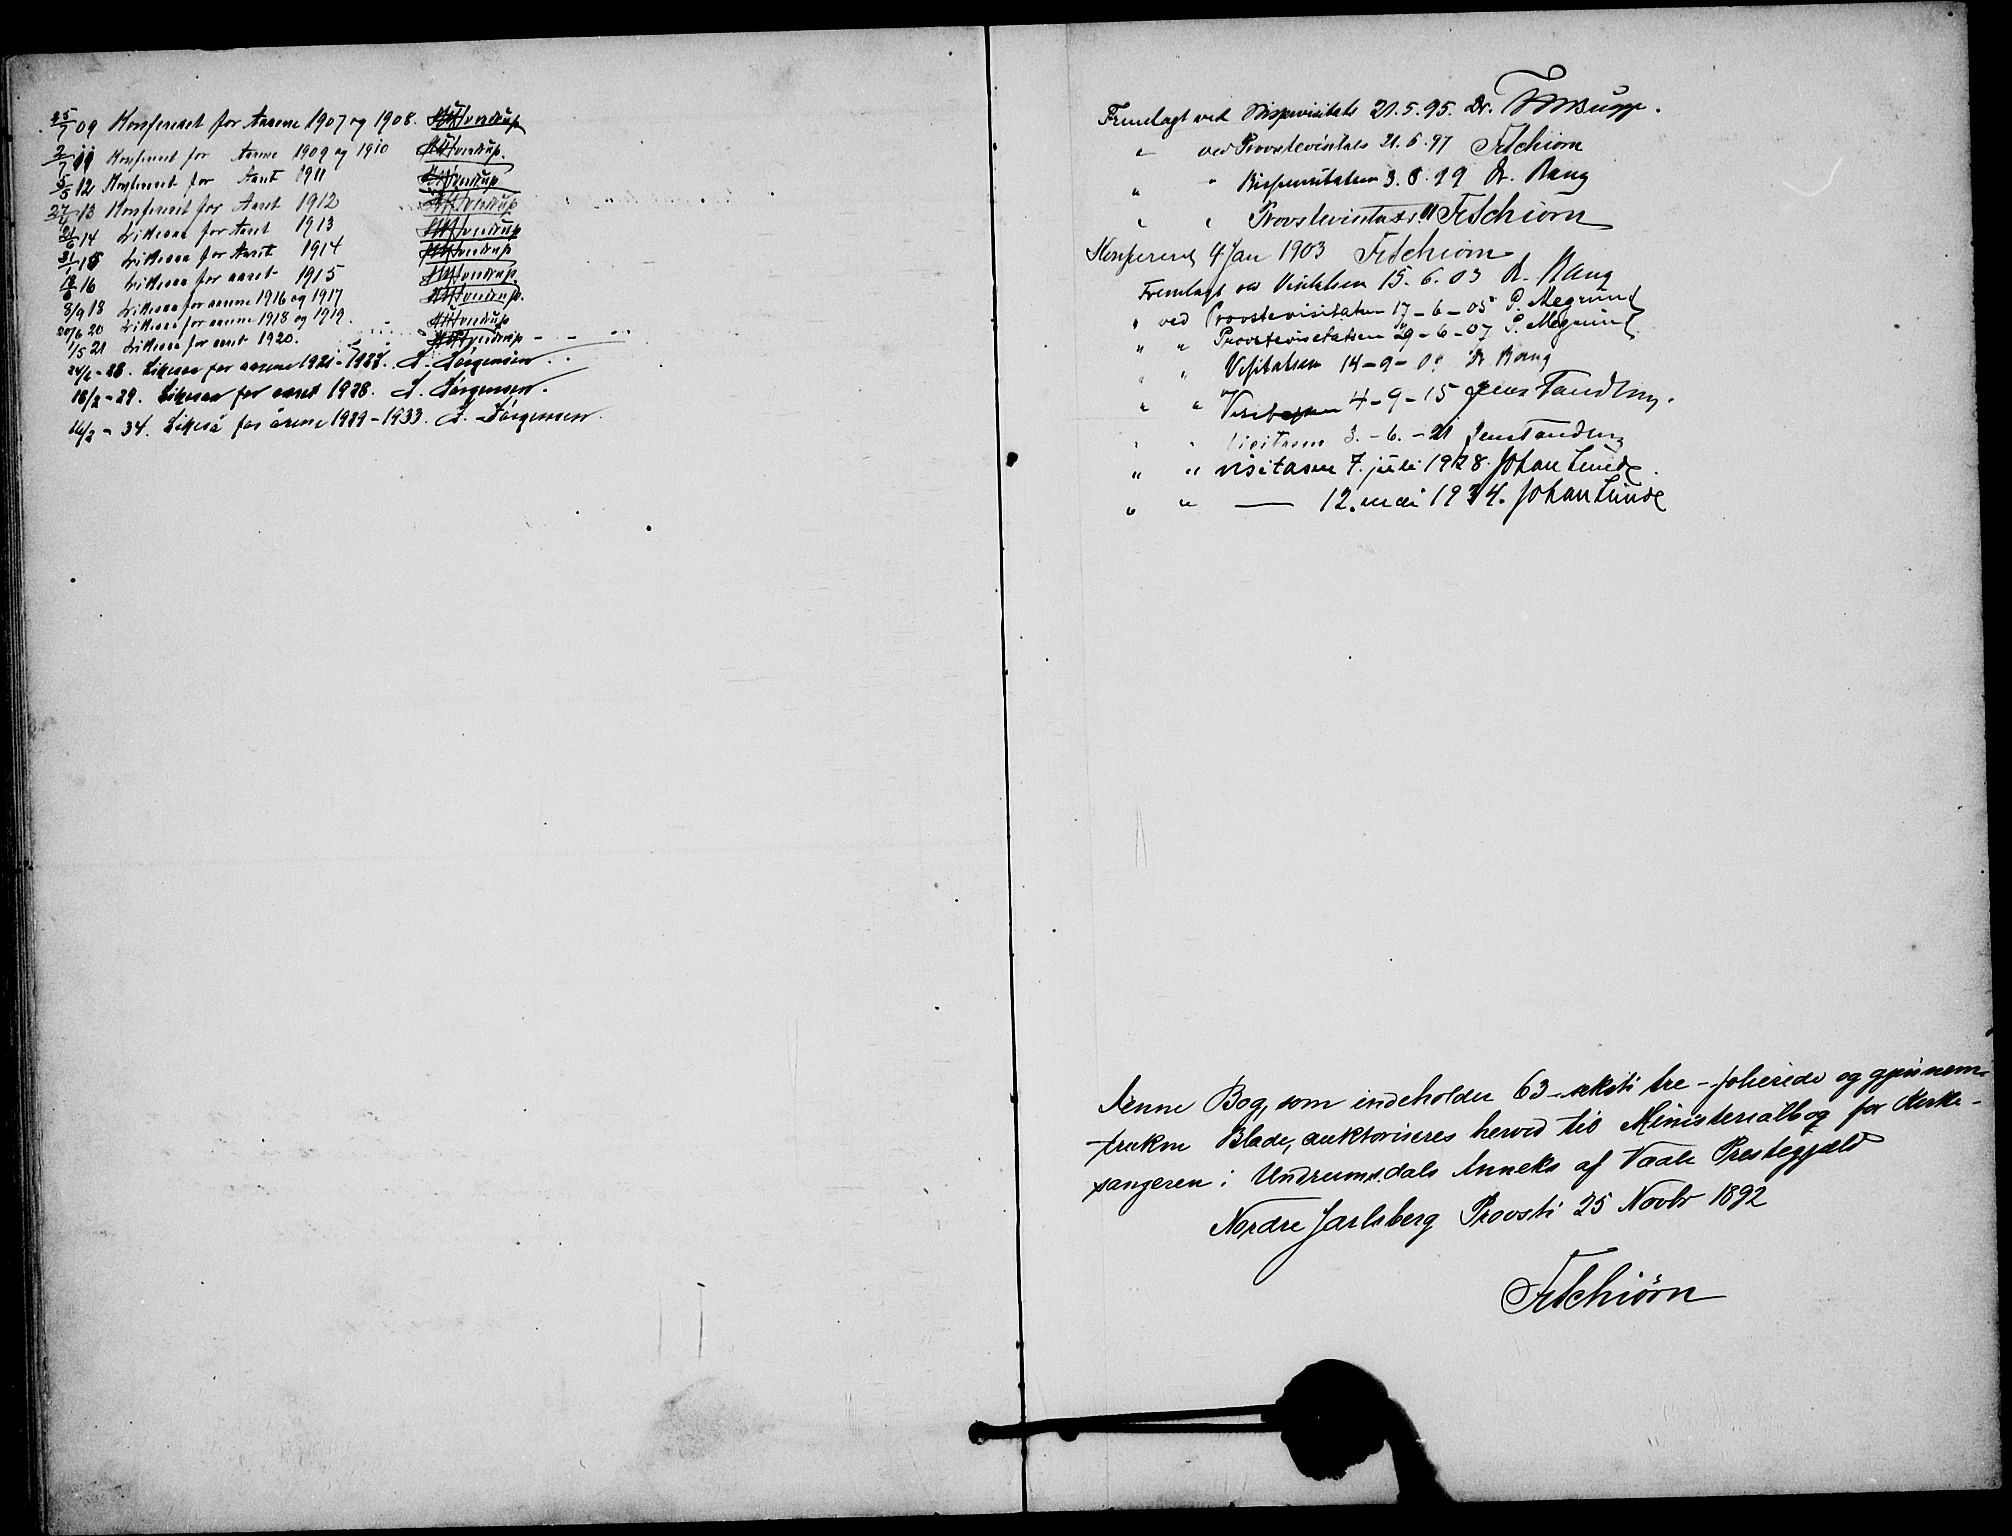 25/7 09 Konfereret for Aarene 1907 og 1908.
2/7 11 Konfereret for Aarene 1909 og 1910
5/5 12 Konfereret for Aaret 1911
13 Konfereret for Aaret 1912
21/6 14 Likesaa for Aaret 1913
31/1 15 Likesaa for Aaret 1914
16 Likesaa for aaret 1915
8/9 18 Likesaa for aarene 1916 og 1917
20/6 20 Likesaa for aarene 1918 og 1919.
1/5 21 Likesaa for aaret 1920.
24/2 - 28. Likesaa for aarene 1921 - 1927. Jørgensen
18/2 - 29. Likesaa for aaret 1928. Jørgensen.
16/2 - 34. Likeså for årene 1929 - 1933. Jørgensen.
Fremlagt ved Bispevisitats 21.5.95. Dr.
" ved Provstevisitats 21.6.97 FSchiørn
" " Bispevisitatsen 3.8.99 Dr. Bang
" " Provstevisitats FSchiørn
Konfereret 9 Jan 1903 FSchiørn
Fremlagt ved Visitatsen 15.6.03 Dr. Bang
" ved Provstevisitatsen 17-6-05
" " Provstevisitatsen 29-6-07
" " Visitatsen 14-9-0 Dr Bang
" " 4-9-15 Jens Tandberg.
" " Visitasen 3.-6.-21 Jens Tandberg
" " visitasen 7. juli 1928. Johan Lunde.
" " — 12. mai 1934. Johan Lunde
Denne Bog, som indeholder 63 - seksti tre - folierede og gjennem-
trukne Blade, auktoriseres herved til Ministerialbog for Kirke-
sangeren i Undrumsdals Anneks af Vaale Prestegjæld
Nordre Jarlsberg Provsti 25 Novbr 1892
FSchiørn